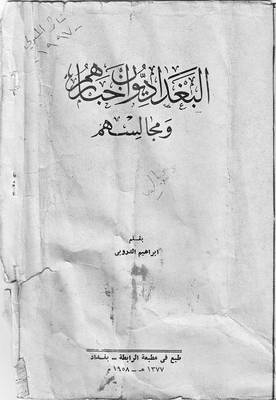 البغداديون أخبارهم
ومجالسهم
بقلم
ابراهيم الدروبي
طبع في مطبعة الرابطة – بغداد
١٣٧٧ هـ – ١٩٥٨ م